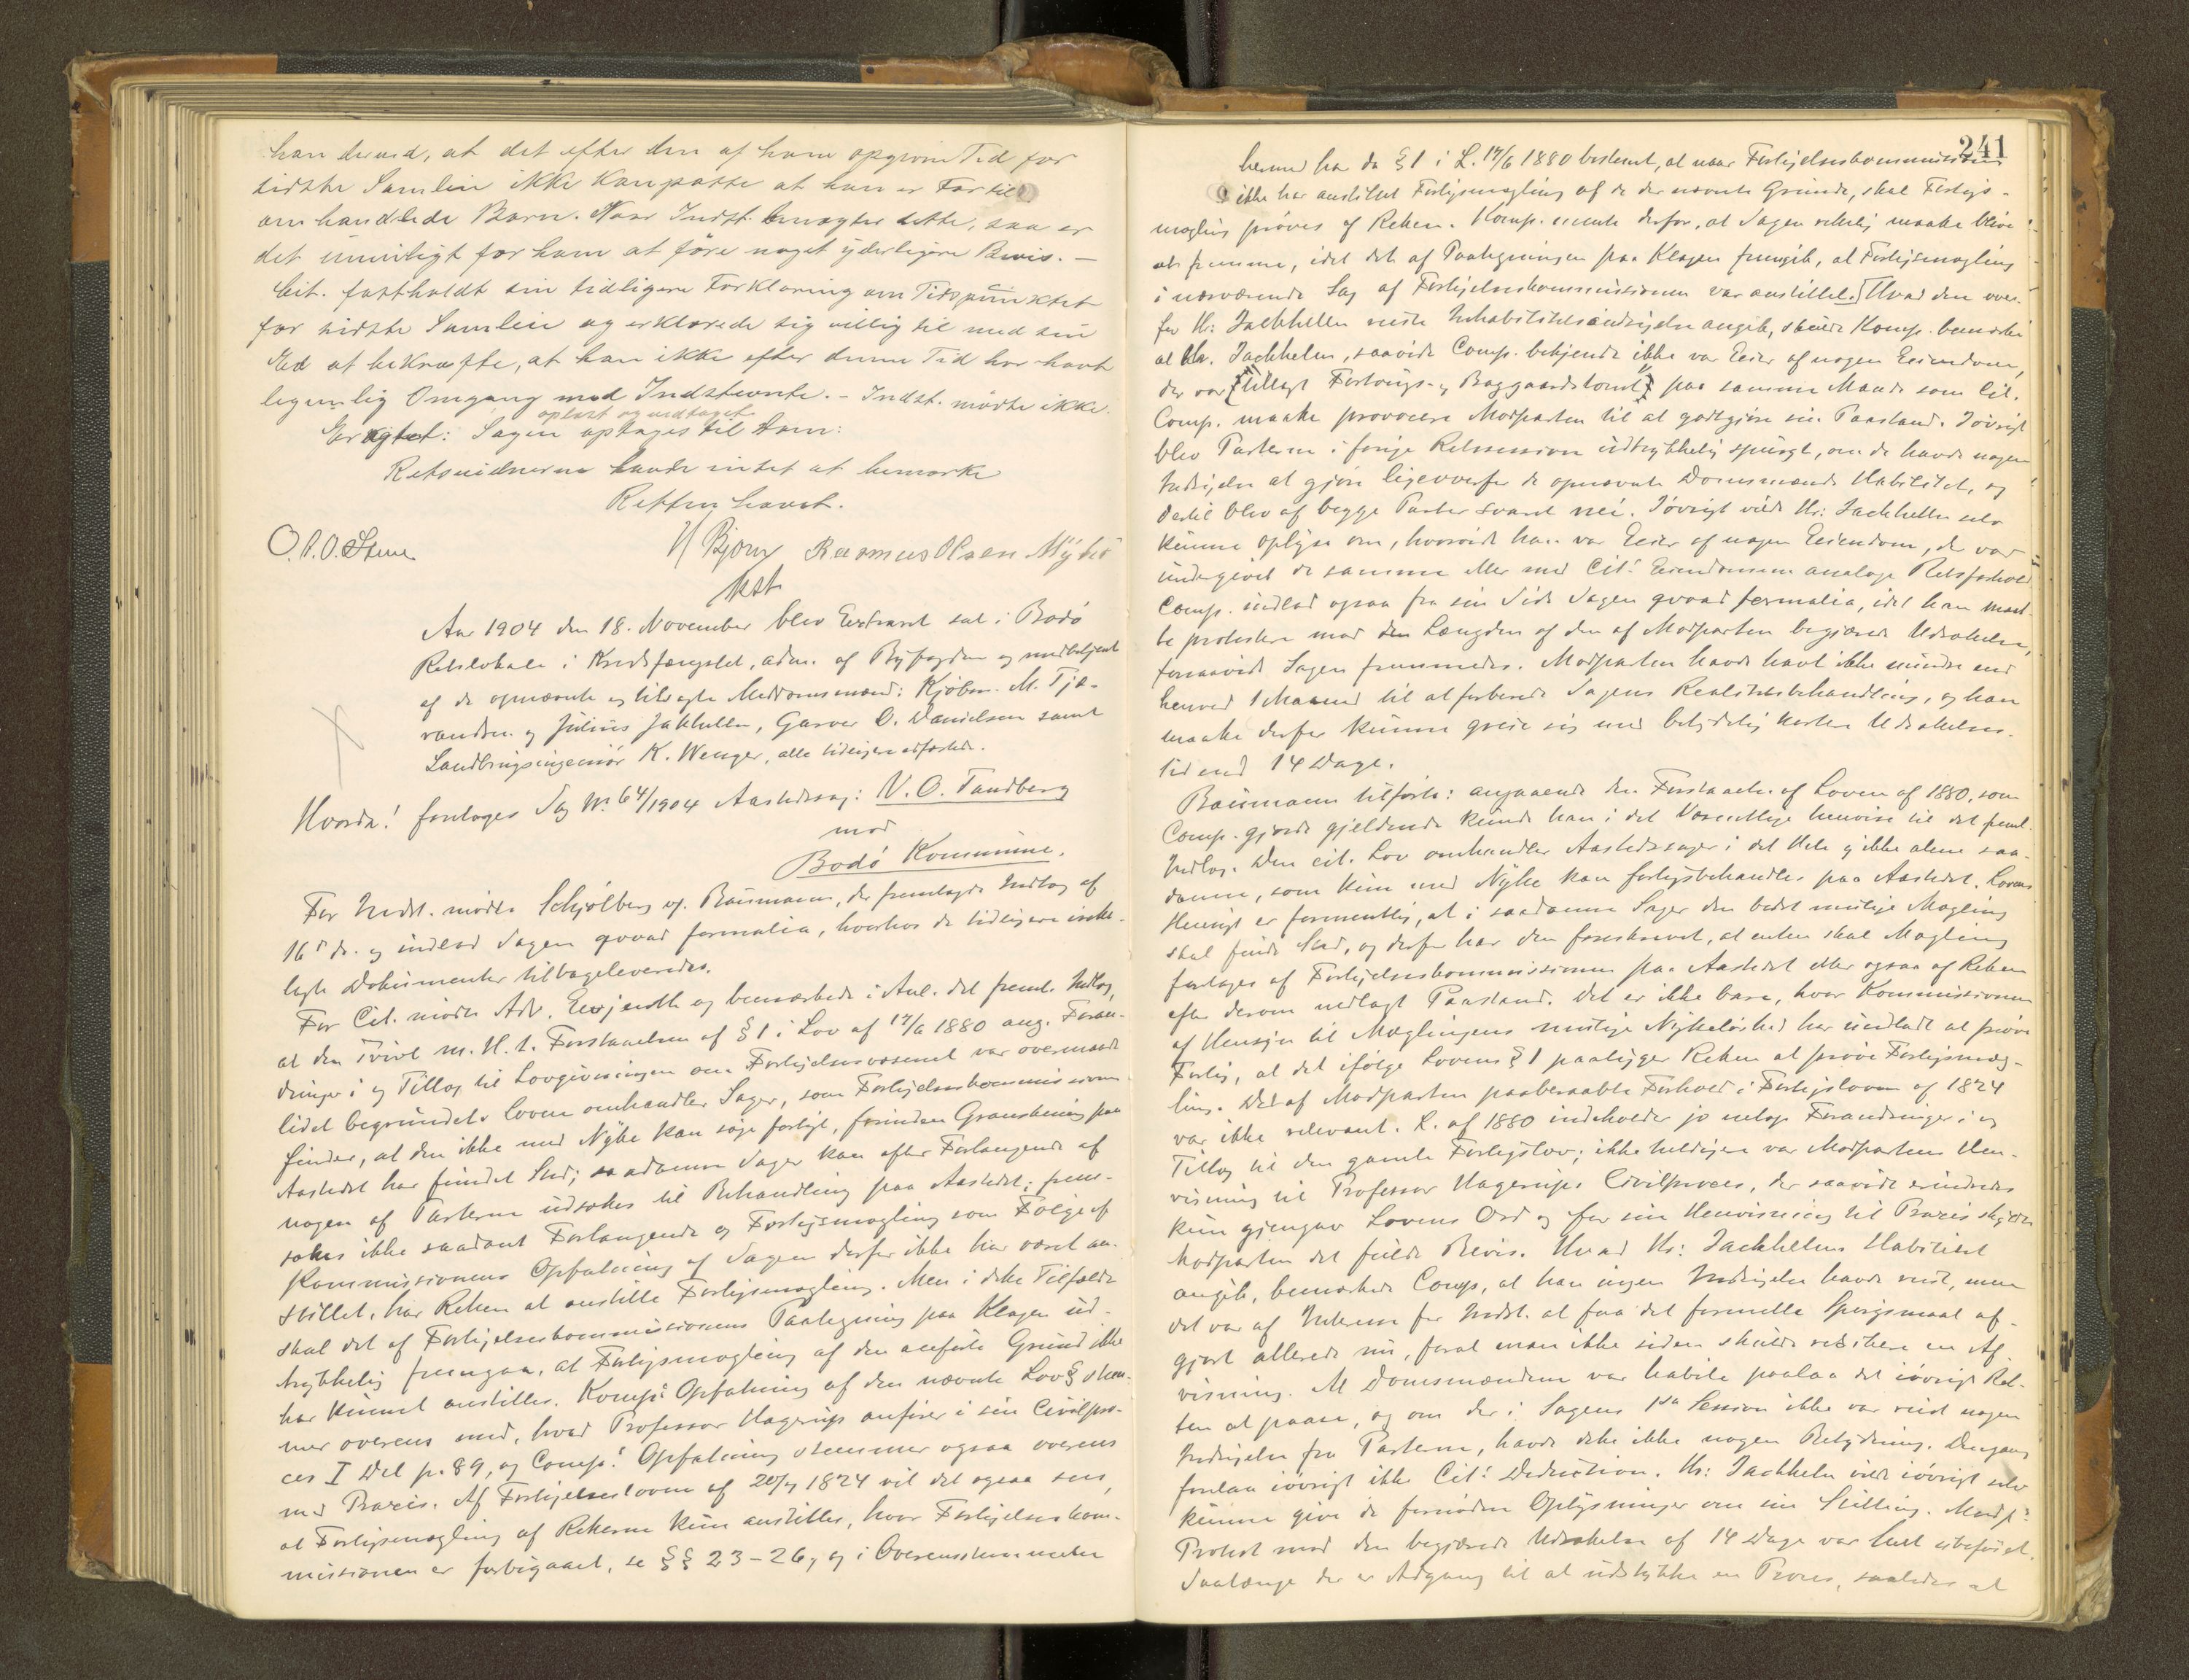 han derved, at det efter den af ham opgivne Tid for
sidste Samleie ikke kan passe at han er Far til
omhandlede Barn. Naar Indst. benægter dette, saa er
det umuligt for ham at føre noget yderligere Bevis. –
Cit. fastholdt sin tidligere Forklaring om Tidspunktet
for sidste Samleie og erklærede sig villig til med sin
Ed at bekræfte, at han ikke efter denne Tid har havt
legemlig Omgang med Indstevnte. – Indst. mødte ikke.
oplæst og vedtaget
Eragtet: Sagen optages til Dom:
Retsvidnerne havde intet at bemærke
Retten hævet.
O.P.O. Steen H Bjørn Rasmus Olsen Myhre
kst.
Aar 1904 den 18. November blev Extraret sat i Bodø
Retslokale i Kredsfængslet, adm. af Byfogden og medbetjent
af de opnævnte og tilsagte Meddomsmænd: Kjøbm. M. Tje-
randsen og Julius Jakhelln, Garver C. Danielsen samt
Landbrugsingeniør K. Wenger, alle tidligere edfæstede.
Hvorda! foretoges Sag No. 64/1904 Aastedssag: V. O. Tandberg
mod
Bodø Kommune.
For Indst. mødte Schjølberg v. Baumann, der fremlagde Indlæg af
16de ds. og indlod Sagen qvoad formalia, hvorhos de tidligere irette-
lagte Dokumenter tilbageleveredes.
For Cit. mødte Adv. Evjenth og bemærkede i Anl. det freml. Indlæg,
at den Tvivl m. H. t. Forstaaelsen af § 1 i Lov af 17/6 1880 ang. Foran-
dringer i og Tillæg til Lovgivningen om Forligelsesvæsenet var overmaade
lidet begrundet. Loven omhandler Sager, som Forligelseskommissionen
finder, at den ikke med Nytte kan søge forligt, forinden Granskning paa
Aastedet har fundet Sted; saadanne Sager kan efter Forlangende af
nogen af Parterne udsættes til Behandling paa Aastedet; frem-
sættes ikke saadant Forlangende og Forligsmægling som Følge af
Kommissionens Opfatning af Sagen derfor ikke har været an-
stillet, har Retten at anstille Forligsmægling. Men i dette Tilfælde
skal det af Forligelseskommissionens Paategning paa Klagen ud-
trykkelig fremgaa, at Forligsmægling af den anførte Grund ikke
har kunnet anstilles. Komp.s Opfatning af den nævnte Lov§ stem-
mer overens med, hvad Professor Hagerup anfører i sin Civilpro-
ces I Del p. 89, og Comp.s Opfatning stemmer ogsaa overens
med Praxis. Af Forligelsesloven af 20/7 1824 vil det ogsaa sees,
at Forligsmægling af Retterne kun anstilles, hvor Forligelseskom-
missionen er forbigaaet, se §§ 23–26, og i Overensstemmelse
241
hermed har da § 1 i L. 17/6 1880 bestemt, at naar Forligelseskommissionen
ikke har anstillet Forligsmægling af de der nævnte Grunde, skal Forligs-
mægling prøves af Retten. Komp. mente derfor, at Sagen rettelig maatte blive
at fremme, idet det af Paategningen paa Klagen fremgik, at Forligsmægling
i nærværende Sag af Forligelseskommissionen var anstillet. Hvad den over-
for Hr. Jackhelln reiste Inhabilitetsindsigelse angik, skulde Komp. bemærke
at Hr. Jackhelln, saavidt Comp. bekjendt ikke var Eier af nogen Eiendom,
der var tillagt Fortougs- og Baggaardstomt paa samme Maade som Cit.
Comp. maatte provocere Modparten til at godtgjøre sin Paastand. Iøvrigt
blev Parterne i forrige Retssession udtrykkelig spurgt, om de havde nogen
Indsigelse at gjøre ligeoverfor de opnævnte Domsmænds Habilitet, og
dertil blev af begge Parter svaret nei. Iøvrigt vilde Hr. Jackhelln selv
kunne oplyse om, hvorvidt han var Eier af nogen Eiendom, der var
undergivet de samme eller med Cit.s Eiendommen analoge Retsforhold
Comp. indlod ogsaa fra sin Side Sagen qvoad formalia, idet han maat-
te protestere mod den Længden af den af Modparten begjærede Udsættelse,
forsaavidt Sagen fremmedes. Modparten havde havt ikke mindre end
henved 1 Maaned til at forberede Sagens Realitetsbehandling, og han
maatte derfor kunne greie sig med betydelig kortere Udsættelses-
tid end 14 Dage.
Baumann tilførte: angaaende den Forstaaelse af Loven af 1880, som
Comp. gjorde gjeldende kunde han i det Væsentlige henvise til det freml.
Indlæg. Den cit. Lov omhandler Aastedssager i det Hele og ikke alene saa-
danne, som kun med Nytte kan forligsbehandles paa Aastedet. Lovens
Hensigt er formentlig, at i saadanne Sager den bedst mulige Mægling
skal finde Sted, og derfor har den foreskrevet, at enten skal Mægling
foretages af Forligelseskommissionen paa Aastedet eller ogsaa af Retten
efter derom nedlagt Paastand. Det er ikke bare, hvor Kommissionen
af Hensyn til Mæglingens mulige Nytteløshed har undladt at prøve
Forlig, at det ifølge Lovens § 1 paaligger Retten at prøve Forligsmæg-
ling. Det af Modparten paaberaabte Forhold i Forligsloven af 1824
var ikke relevant. L. af 1880 indeholder jo netop Forandringer i og
Tillæg til den gamle Forligslov; ikke heldigere var Modpartens Hen-
visning til Professor Hagerups Civilproces, der saavidt erindredes
kun gjengav Lovens Ord og for sin Henvisning til Praxis skylder
Modparten det fulde Bevis. Hvad Hr. Jackhellns Habilitet
angik, bemærkede Comp, at han ingen Indsigelse havde reist, men
det var af Interesse for Indst. at faa det formelle Spørgsmaal af-
gjort allerede nu, forat man ikke siden skulde risikere en Af-
visning. At Domsmændene var habile paalaa det iøvrigt Ret-
ten at paase, og om der i Sagens 1ste Session ikke var reist nogen
Indsigelse fra Parterne, havde dette ikke nogen Betydning. Dengang
forelaa iøvrigt ikke Cit.s Deduction. Hr. Jackhelln vilde iøvrigt selv
kunne give de fornødne Oplysninger om sin Stilling. Modp.s
Protest mod den begjærede Udsættelse af 14 Dage var helt ubeføiet.
Saalænge der er Adgang til at udstykke en Proces, saaledes at